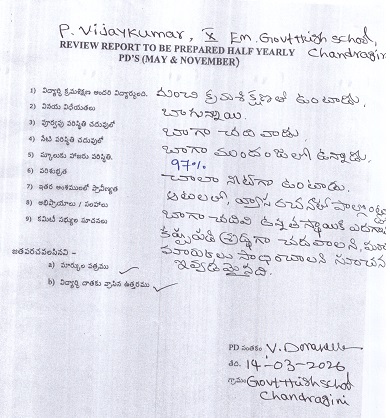 P. Vijaykumar, X Em. Govt High school,
REVIEW REPORT TO BE PREPARED HALF YEARLY Chandragini
PD'S (MAY & NOVEMBER)
1) విద్యార్థి క్రమశిక్షణ అందరి విద్యార్థులది. మంచి క్రమశిక్షణతో ఉంటాడు.
2) వినయ విధేయతలు బాగున్నాయి.
3) పూర్వపు పరిస్థితి చదువులో బాగా చదివాడు.
4) నేటి పరిస్థితి చదువులో బాగా ముందంజలో ఉన్నాడు.
5) స్కూలుకు హాజరు పరిస్థితి. 97%
6) పరిశుభ్రత చాలా నీట్‌గా ఉంటాడు.
7) ఇతర అంశములలో ప్రావీణ్యత ఆటలలో, వ్యాస రచనలో
8) అభిప్రాయాలు / సలహాలు బాగా చదివి ఉన్నత స్థాయికి
9) కమిటీ సభ్యుల సూచనలు ఎప్పుడు శ్రద్ధగా చదువాలని,
సాధించాలని సూచన
ఇవ్వడమైనది.
జతపరచవలసినవి -
a) మార్కుల పత్రము ✓
b) విద్యార్థి చాతకు వ్రాసిన ఉత్తరము ✓
PD సంతకం V.
తేది. 14-03-2026
గ్రామం Govt High school
Chandragini